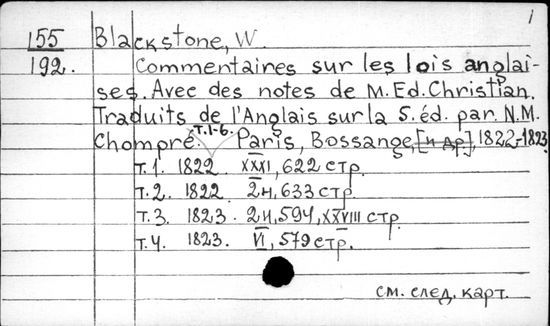 1
155 Blackstone, W.
192. Commentaires sur les lois anglai-
ses. Avec des notes de M. Ed. Christian.
Traduits de l'Anglais sur la 5. éd. par. N.M.
Chompré. т.1-6. Paris, Bossange, [и др], 1822-1823
т.1. 1822. XXXI, 622 стр.
т.2. 1822. 2н, 633 стр.
т.3. 1823. 2н, 594, XXVIII стр.
т.4. 1823. VI, 579 стр.
см. след. карт.